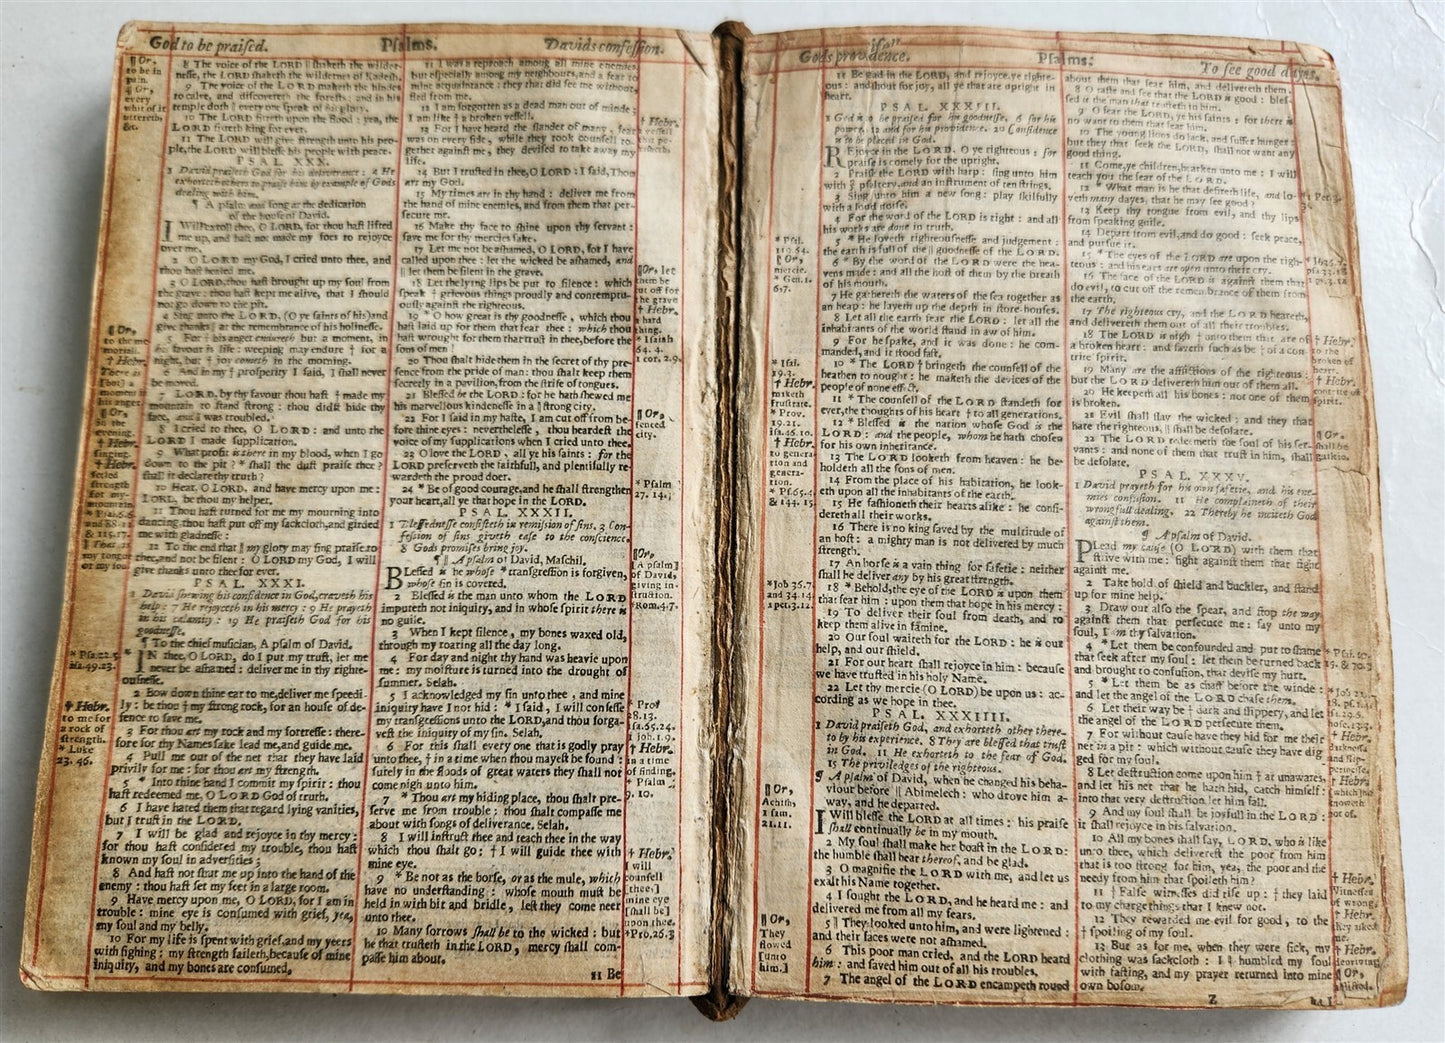 God to be praiſed. Pſalms. Davids confeſſion.
8 The voice of the LORD ſhaketh the wilder-
neſſe, the LORD ſhaketh the wildernes of Kadeſh.
9 The voice of the LORD maketh the hindes
to calve, and diſcovereth the foreſts: and in his
temple doth || every one ſpeak of his glory.
10 The LORD ſitteth upon the flood: yea, the
LORD ſitteth king for ever.
11 The LORD will give ſtrength unto his peo-
ple, the LORD will bleſſe his people with peace.
PSAL. XXX.
1 David praiſeth God for his deliverance: 4 He
exhorteth others to praiſe him by example of Gods
dealing with him.
¶ A pſalm and ſong at the dedication
of the houſe of David.
I Will extoll thee, O LORD, for thou haſt lifted
me up, and haſt not made my foes to rejoyce
over me.
2 O LORD my God, I cried unto thee, and
thou haſt healed me.
3 O LORD, thou haſt brought up my ſoul from
the grave: thou haſt kept me alive, that I ſhould
not go down to the pit.
4 Sing unto the LORD, (O ye ſaints of his) and
give thanks || at the remembrance of his holineſſe.
5 For † his anger endureth but a moment, in
his favour is life: weeping may endure † for a
night, but † joy cometh in the morning.
6 And in my † proſperity I ſaid, I ſhall never
be moved.
7 LORD, by thy favour thou haſt † made my
mountain to ſtand ſtrong: thou didſt hide thy
face, and I was troubled.
8 I cried to thee, O LORD: and unto the
LORD I made ſupplication.
9 What profit is there in my blood, when I go
down to the pit? * ſhall the duſt praiſe thee?
ſhall it declare thy truth?
10 Hear, O LORD, and have mercy upon me:
LORD, be thou my helper.
11 Thou haſt turned for me my mourning into
dancing, thou haſt put off my ſackcloth, and girded
me with gladneſſe:
12 To the end that || my glory may ſing praiſe to
thee, and not be ſilent: O LORD my God, I will
give thanks unto thee for ever.
PSAL. XXXI.
1 David ſhewing his confidence in God, craveth his
help: 7 He rejoyceth in his mercy: 9 He prayeth
in his calamity: 19 He praiſeth God for his
goodneſſe.
¶ To the chief muſician, A pſalm of David.
* IN thee, O LORD, do I put my truſt, let me
never be aſhamed: deliver me in thy righte-
ouſneſſe.
2 Bow down thine ear to me, deliver me ſpeedi-
ly: be thou † my ſtrong rock, for an houſe of de-
fence to ſave me.
3 For thou art my rock and my fortreſſe: there-
fore for thy Names ſake lead me, and guide me.
4 Pull me out of the net that they have laid
privily for me: for thou art my ſtrength.
5 * Into thine hand I commit my ſpirit: thou
haſt redeemed me, O LORD God of truth.
6 I have hated them that regard lying vanities,
but I truſt in the LORD.
7 I will be glad and rejoyce in thy mercy:
for thou haſt conſidered my trouble, thou haſt
known my ſoul in adverſities;
8 And haſt not ſhut me up into the hand of the
enemy: thou haſt ſet my feet in a large room.
9 Have mercy upon me, O LORD, for I am in
trouble: mine eye is conſumed with grief, yea,
my ſoul and my belly.
10 For my life is ſpent with grief, and my yeers
with ſighing: my ſtrength faileth, becauſe of mine
iniquity, and my bones are conſumed,
11 I was a reproach among all mine enemies
but eſpecially among my neighbours, and a fear to
mine acquaintance: they that did ſee me without,
fled from me.
12 I am forgotten as a dead man out of minde:
I am like † a broken veſſell.
13 For I have heard the ſlander of many, fear
was on every ſide, while they took counſell to-
gether againſt me, they deviſed to take away my
life.
14 But I truſted in thee, O LORD: I ſaid, Thou
art my God.
15 My times are in thy hand: deliver me from
the hand of mine enemies, and from them that per-
ſecute me.
16 Make thy face to ſhine upon thy ſervant:
ſave me for thy mercies ſake.
17 Let me not be aſhamed, O LORD, for I have
called upon thee: let the wicked be aſhamed, and
|| let them be ſilent in the grave.
18 Let the lying lips be put to ſilence: which
ſpeak † grievous things proudly and contemptu-
ouſly againſt the righteous.
19 * O how great is thy goodneſſe, which thou
haſt laid up for them that fear thee: which thou
haſt wrought for them that truſt in thee, before the
ſons of men!
20 Thou ſhalt hide them in the ſecret of thy pre-
ſence from the pride of man: thou ſhalt keep them
ſecretly in a pavilion, from the ſtrife of tongues.
21 Bleſſed be the LORD: for he hath ſhewed me
his marvellous kindeneſſe in a || ſtrong city.
22 For I ſaid in my haſte, I am cut off from be-
fore thine eyes: nevertheleſſe, thou heardeſt the
voice of my ſupplications when I cried unto thee.
23 O love the LORD, all ye his ſaints: for the
LORD preſerveth the faithfull, and plentifully re-
wardeth the proud doer.
24 * Be of good courage, and he ſhall ſtrengthen
your heart, all ye that hope in the LORD.
PSAL. XXXII.
1 Bleſſedneſſe conſiſteth in remiſſion of ſins. 3 Con-
feſſion of ſins giveth eaſe to the conſcience.
8 Gods promiſes bring joy.
¶ || A pſalm of David, Maſchil.
BLeſſed is he whoſe * tranſgreſſion is forgiven,
whoſe ſin is covered.
2 Bleſſed is the man unto whom the LORD
imputeth not iniquity, and in whoſe ſpirit there is
no guile.
3 When I kept ſilence, my bones waxed old,
through my roaring all the day long.
4 For day and night thy hand was heavie upon
me: my moiſture is turned into the drought of
ſummer. Selah.
5 I acknowledged my ſin unto thee, and mine
iniquity have I not hid: * I ſaid, I will confeſſe
my tranſgreſſions unto the LORD, and thou forga-
veſt the iniquity of my ſin. Selah.
6 For this ſhall every one that is godly pray
unto thee, † in a time when thou mayeſt be found:
ſurely in the floods of great waters they ſhall not
come nigh unto him.
7 * Thou art my hiding place, thou ſhalt pre-
ſerve me from trouble; thou ſhalt compaſſe me
about with ſongs of deliverance. Selah.
8 I will inſtruct thee and teach thee in the way
which thou ſhalt go: † I will guide thee with
mine eye.
9 * Be not as the horſe, or as the mule, which
have no underſtanding: whoſe mouth muſt be
held in with bit and bridle, leſt they come neer
unto thee.
10 Many ſorrows ſhall be to the wicked: but
he that truſteth in the LORD, mercy ſhall com-
paſſe him about.
11 Be
Gods providence. Pſalms. To ſee good dayes.
11 Be glad in the LORD, and rejoyce ye righte-
ous: and ſhout for joy, all ye that are upright in
heart.
PSAL. XXXIII.
1 God is to be praiſed for his goodneſſe, 6 for his
power, 12 and for his providence. 20 Confidence
is to be placed in God.
REjoyce in the LORD, O ye righteous: for
praiſe is comely for the upright.
2 Praiſe the LORD with harp: ſing unto him
with † pſaltery, and an inſtrument of ten ſtrings.
3 Sing unto him a new ſong: play ſkilfully
with a loud noiſe.
4 For the word of the LORD is right: and all
his works are done in truth.
5 * He loveth righteouſneſſe and judgement:
the earth is full of the || goodneſſe of the LORD.
6 * By the word of the LORD were the hea-
vens made: and all the hoſt of them by the breath
of his mouth.
7 He gathereth the waters of the ſea together as
an heap: he layeth up the depth in ſtore-houſes.
8 Let all the earth fear the LORD: let all the
inhabitants of the world ſtand in aw of him.
9 For he ſpake, and it was done: he com-
manded, and it ſtood faſt.
10 * The LORD † bringeth the counſell of the
heathen to nought: he maketh the devices of the
people of none effect.
11 * The counſell of the LORD ſtandeth for
ever, the thoughts of his heart † to all generations.
12 * Bleſſed is the nation whoſe God is the
LORD: and the people, whom he hath choſen
for his own inheritance.
13 The LORD looketh from heaven: he be-
holdeth all the ſons of men.
14 From the place of his habitation, he look-
eth upon all the inhabitants of the earth.
15 He faſhioneth their hearts alike: he conſi-
dereth all their works.
16 There is no king ſaved by the multitude of
an hoſt: a mighty man is not delivered by much
ſtrength.
17 An horſe is a vain thing for ſafetie: neither
ſhall he deliver any by his great ſtrength.
18 * Behold, the eye of the LORD is upon them
that fear him: upon them that hope in his mercy:
19 To deliver their ſoul from death, and to
keep them alive in famine.
20 Our ſoul waiteth for the LORD: he is our
help, and our ſhield.
21 For our heart ſhall rejoyce in him: becauſe
we have truſted in his holy Name.
22 Let thy mercy (O LORD) be upon us: ac-
cording as we hope in thee.
PSAL. XXXIIII.
1 David praiſeth God, and exhorteth other there-
to by his experience. 8 They are bleſſed that truſt
in God. 11 He exhorteth to the fear of God.
15 The priviledges of the righteous.
¶ A pſalm of David, when he changed his beha-
viour before || Abimelech: who drove him a-
way, and he departed.
I Will bleſſe the LORD at all times: his praiſe
ſhall continually be in my mouth.
2 My ſoul ſhall make her boaſt in the LORD:
the humble ſhall hear thereof, and be glad.
3 O magnifie the LORD with me, and let us
exalt his Name together.
4 I ſought the LORD, and he heard me: and
delivered me from all my fears.
5 || They looked unto him, and were lightened:
and their faces were not aſhamed.
6 This poor man cried, and the LORD heard
him: and ſaved him out of all his troubles.
7 The angel of the LORD encampeth round
about them that fear him, and delivereth them.
8 O taſte and ſee that the LORD is good: bleſ-
ſed is the man that truſteth in him.
9 O fear the LORD, ye his ſaints: for there is
no want to them that fear him.
10 The young lions do lack, and ſuffer hunger:
but they that ſeek the LORD, ſhall not want any
good thing.
11 Come, ye children, hearken unto me: I will
teach you the fear of the LORD.
12 * What man is he that deſireth life, and lo-
veth many dayes, that he may ſee good?
13 Keep thy tongue from evil, and thy lips
from ſpeaking guile.
14 Depart from evil, and do good: ſeek peace,
and purſue it.
15 * The eyes of the LORD are upon the righ-
teous: and his ears are open unto their cry.
16 The face of the LORD is againſt them that
do evil, to cut off the remembrance of them from
the earth.
17 The righteous cry, and the LORD heareth,
and delivereth them out of all their troubles.
18 The LORD is nigh † unto them that are of
a broken heart: and ſaveth ſuch as be † of a con-
trite ſpirit.
19 Many are the afflictions of the righteous:
but the LORD delivereth him out of them all.
20 He keepeth all his bones: not one of them
is broken.
21 Evil ſhall ſlay the wicked: and they that
hate the righteous, || ſhall be deſolate.
22 The LORD redeemeth the ſoul of his ſer-
vants: and none of them that truſt in him, ſhall
be deſolate.
PSAL. XXXV.
1 David prayeth for his own ſafetie, and his ene-
mies confuſion. 11 He complaineth of their
wrongfull dealing. 22 Thereby he inciteth God
againſt them.
¶ A pſalm of David.
PLead my cauſe (O LORD) with them that
ſtrive with me: fight againſt them that fight
againſt me.
2 Take hold of ſhield and buckler, and ſtand
up for mine help.
3 Draw out alſo the ſpear, and ſtop the way
againſt them that perſecute me: ſay unto my
ſoul, I am thy ſalvation.
4 * Let them be confounded and put to ſhame
that ſeek after my ſoul: let them be turned back
and brought to confuſion, that deviſe my hurt.
5 * Let them be as chaff before the winde:
and let the angel of the LORD chaſe them.
6 Let their way be † dark and ſlippery, and let
the angel of the LORD perſecute them.
7 For without cauſe have they hid for me their
net in a pit: which without cauſe they have dig
ged for my ſoul.
8 Let deſtruction come upon him † at unawares,
and let his net that he hath hid, catch himſelf:
into that very deſtruction let him fall.
9 And my ſoul ſhall be joyfull in the LORD:
it ſhall rejoyce in his ſalvation.
10 All my bones ſhall ſay, LORD, who is like
unto thee, which delivereſt the poor from him
that is too ſtrong for him, yea, the poor and the
needy from him that ſpoileth him?
11 † Falſe witneſſes did riſe up: † they laid
to my charge things that I knew not.
12 They rewarded me evil for good, to the
† ſpoiling of my ſoul.
13 But as for me, when they were ſick, my
clothing was ſackcloth: I || humbled my ſoul
with faſting, and my prayer returned into mine
own boſom.
Z